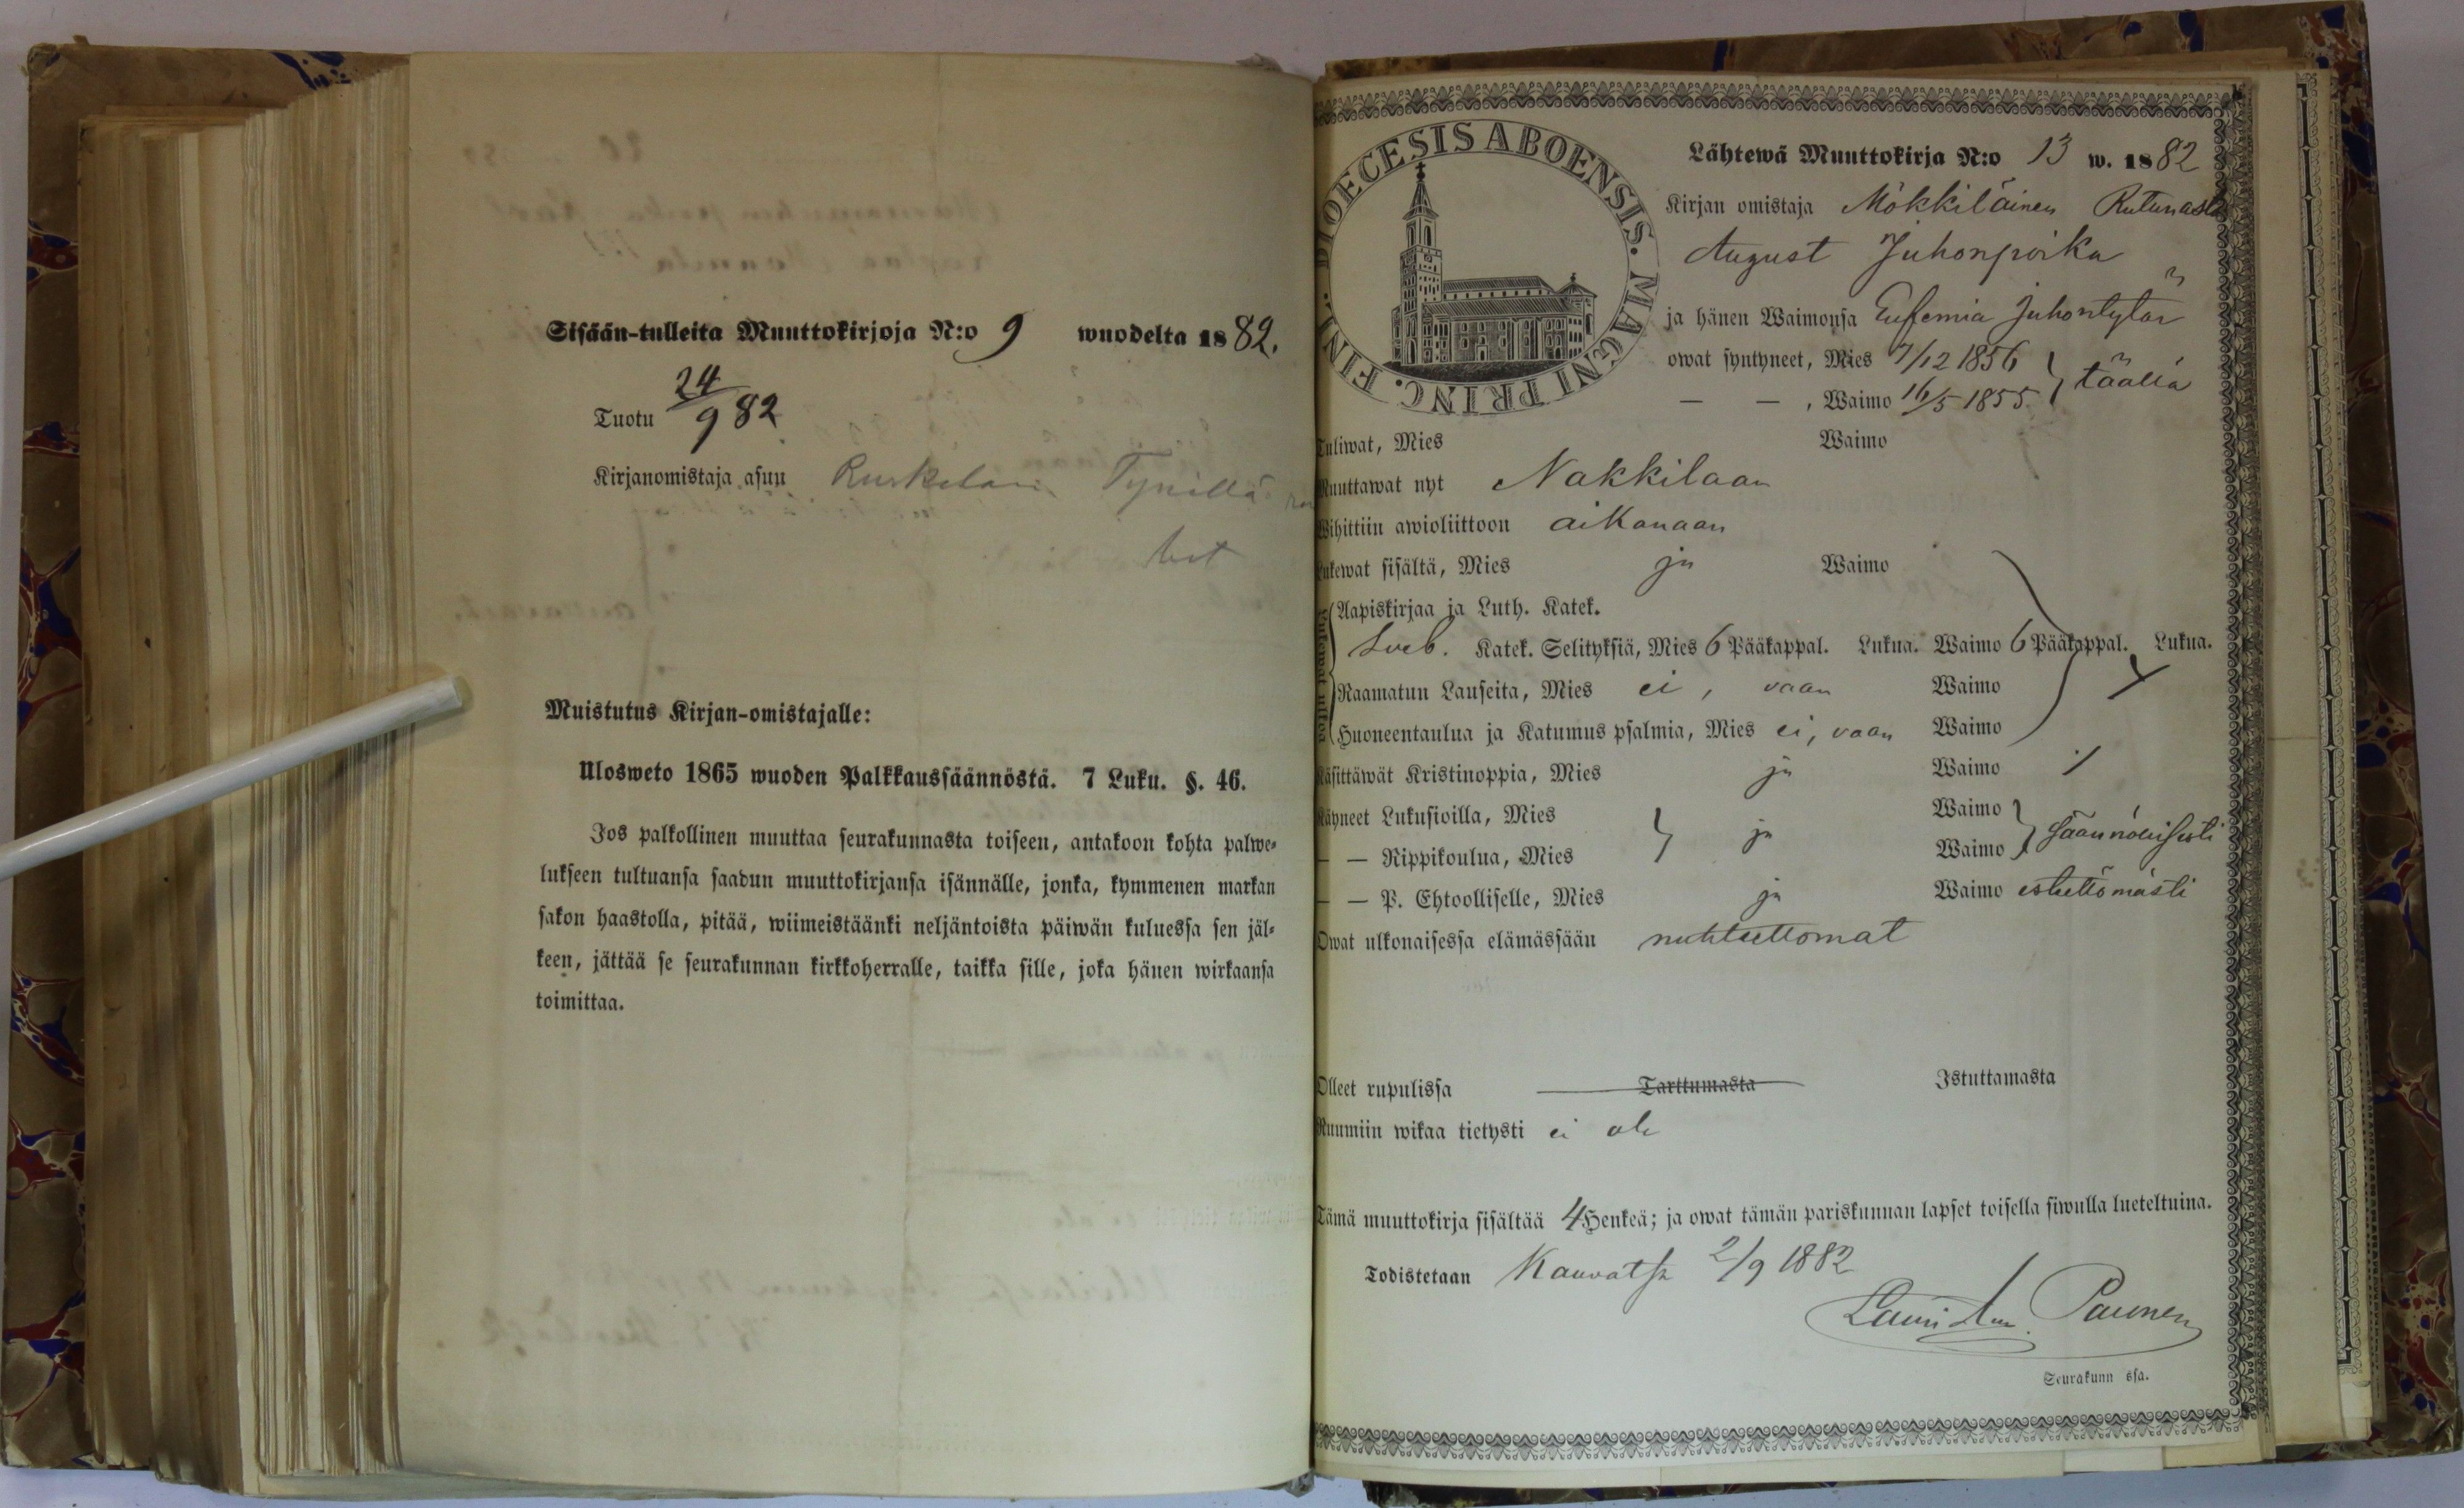 Sisään-tulleita Muuttokirjoja N:o 9 wuodelta 1882.
Tuotu 24/9 82
Kirjanomistaja asuu Ruskelan Tynillä
Muistutus Kirjan-omistajalle:
Ulosweto 1865 wuoden Palkkaussäännöstä. 7 Luku. §. 46.
Jos palkollinen muuttaa seurakunnasta toiseen, antakoon kohta palwe-
lukseen tultuansa saadun muuttokirjansa isännälle, jonka, kymmenen markan
sakon haastolla, pitää, wiimeistäänki neljäntoista päiwän kuluessa sen jäl-
keen, jättää se seurakunnan kirkkoherralle, taikka sille, joka hänen wirkaansa
toimittaa.
DIOECESIS ABOENSIS. MAGNI PRINC. FINL.
Lähtewä Muuttokirja N:o 13 w. 1882
Kirjan omistaja Mökkiläinen
August Juhonpoika
ja hänen Waimonsa Eufemia Juhontytär
owat syntyneet, Mies 7/12 1856 } täällä
— — , Waimo 16/5 1855
Tuliwat, Mies Waimo
Muuttawat nyt Nakkilaan
Wihittiin awioliittoon aikanaan
Lukewat sisältä, Mies ja Waimo
Lukewat ulkoa
Aapiskirjaa ja Luth. Katek.
Sveb. Katek. Selityksiä, Mies 6 Pääkappal. Lukua. Waimo 6 Pääkappal. Lukua.
Raamatun Lauseita, Mies ei, vaan Waimo
Huoneentaulua ja Katumus psalmia, Mies ei, vaan Waimo
Käsittäwät Kristinoppia, Mies ja Waimo
Käyneet Lukusioilla, Mies } ja Waimo } säännöllisesti
— — Rippikoulua, Mies Waimo
— — P. Ehtoolliselle, Mies ja Waimo esteettömästi
Owat ulkonaisessa elämässään nuhteettomat
Olleet rupulissa Tarttumasta Istuttamasta
Ruumiin wikaa tietysti ei ole
Tämä muuttokirja sisältää 4 Henkeä; ja owat tämän pariskunnan lapset toisella siwulla lueteltuina.
Todistetaan Kauvatsa 2/9 1882
Lauri Paunen
Seurakunn ssa.